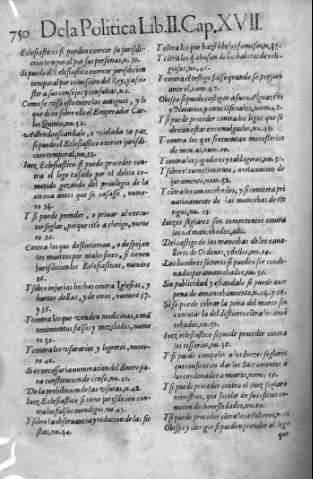 750 De la Politica Lib. II. Cap. XVII.
Eclesiasticos si pueden exercer su jurisdi-
cion temporal por sus personas, n. 30.
Si puede el Eclesiastico exercer jurisdicion
temporal por comission del Rey, y assistir
a sus consejos y consultas,
Como se usò esto entre los antiguos, y lo
que dixo sobre ello el Emperador Car-
los Quinto, nu. 32.
Aviendo escandalo, o violada la paz,
si puede el Eclesiastico exercer jurisdi-
cion temporal, nu. 33.
Iuez Eclesiastico si puede proceder con-
tra el lego casado por el delito co-
metido gozando del privilegio de la
corona antes que se casasse, nume-
ro 34.
Y si puede prender, o privar al execu-
tor seglar, porque cite a clerigo, nume
ro
Y contra los que desentierran, o despojan
los muertos por maleficios, si tienen
jurisdicion los Eclesiasticos, numero
36.
Y sobre injurias hechas contra Iglesias, y
hurtos dellas, y de otros, numero 37.
y 38.
Y contra los que venden medicinas, o man
tenimientos falsos y mezclados, nume
ro 39.
Y contra los usurarios y logreros, nume-
ro 40.
Si es necessaria numeracion del dinero pa-
ra constitucion de censo, nu. 41.
De la prohibicion de las usuras, n. 42.
Iuez Eclesiastico si tiene jurisdicion con-
tra los falsos mendigos, nu. 43.
Y sobre la observancia y reducion de las fie
stas, nu. 44.
Y contra los que hazen libelos famosos, n. 45.
Y contra los que abusan de los habitos de reli-
giosos, nu. 46.
Y contra el testigo falso quando se perjurò
ante el, num. 47.
Obispo si puede castigar a sus Alguaziles
y Notarios, y otros Oficiales, num.
Y si puede proceder contra los legos que se
dexan estar excomulgados, nu. 49.
Y contra los que frecuentan monasterios
de monjas, num. 50.
Y contra los jugadores y tablageros, nu. 51.
Y sobre el cumplimiento, o relaxacion de
juramento, num. 52.
Y contra los amancebados, y si comiença pri
vativamente de las mancebas de cle-
rigos,
Iuezes seglares son competentes contra
los amancebados, alli.
Del castigo de las mancebas de los cava-
lleros de Ordenes, y dellos,
Los hombres solteros si pueden ser conde-
nados por amancebados,
Sin publicidad y escandalo si puede aver
pena de amancebamiento,
Si se puede cobrar la pena del marco sin
executar la del destierro contra las amã
cebadas, nu. 57.
Iuez Eclesiastico si puede proceder contra
los rufianes, nu. 58.
Y si puede compeler a los Iuezes seglares
que consientan dar los Sacramentos à
los condenados a muerte, num.
Y si puede proceder contra el Iuez seglar o
ministros, que so color de sus oficios co-
meten deshonestidades,
Y si puede proceder contra los adulteros,
Obispo y clerigos si pueden prender al lego
que